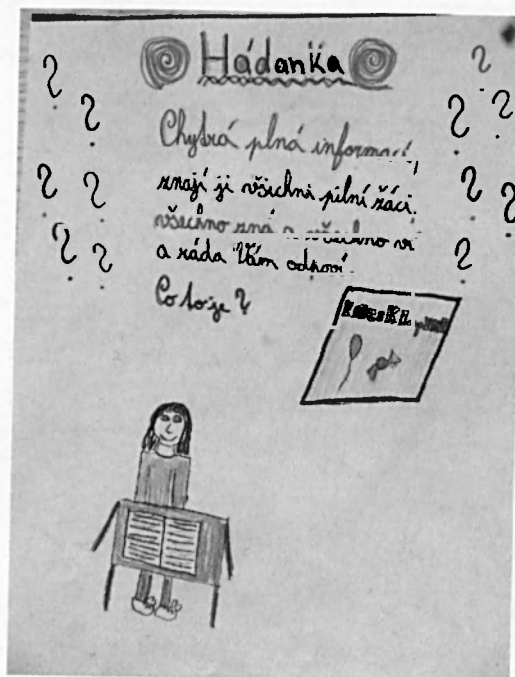 Hádanka
Chytrá plná informací,
znají ji všichni pilní žáci.
všechno zná a všechno ví
a ráda Vám odpoví.
Co to je?